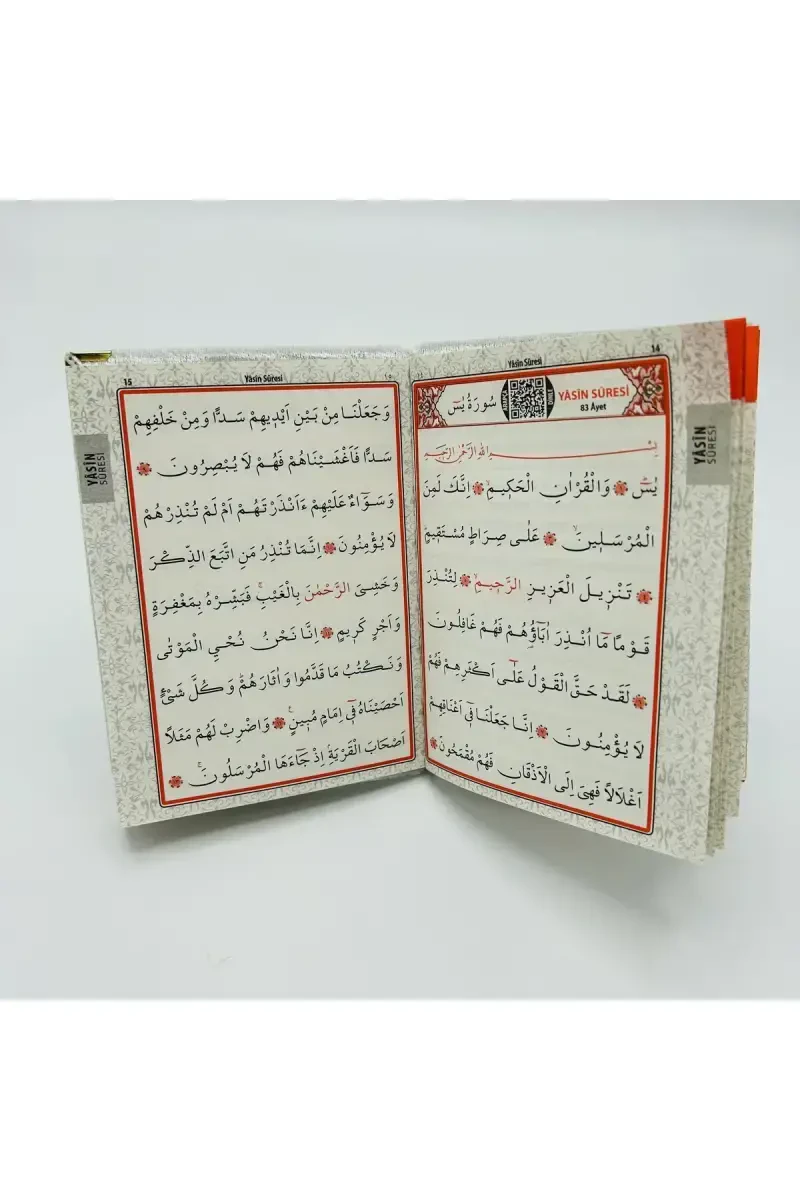 14
Yâsîn Sûresi
سُورَةُ يٰسٓ
YÂSÎN SÛRESİ
83 Âyet
بِسْمِ اللّٰهِ الرَّحْمٰنِ الرَّحِيمِ
يٰسٓ ۝ وَالْقُرْاٰنِ الْحَكٖيمِۙ ۝ اِنَّكَ لَمِنَ
الْمُرْسَلٖينَۙ ۝ عَلٰى صِرَاطٍ مُسْتَقٖيمٍ
۝ تَنْزٖيلَ الْعَزٖيزِ الرَّحٖيمِۙ ۝ لِتُنْذِرَ
قَوْمًا مَٓا اُنْذِرَ اٰبَٓاؤُ۬هُمْ فَهُمْ غَافِلُونَ
۝ لَقَدْ حَقَّ الْقَوْلُ عَلٰٓى اَكْثَرِهِمْ فَهُمْ
لَا يُؤْمِنُونَ ۝ اِنَّا جَعَلْنَا فٖٓي اَعْنَاقِهِمْ
اَغْلَالًا فَهِيَ اِلَى الْاَذْقَانِ فَهُمْ مُقْمَحُونَ ۝
YÂSÎN
SÛRESİ
15
Yâsîn Sûresi
١٥
وَجَعَلْنَا مِنْ بَيْنِ اَيْدٖيهِمْ سَدًّا وَمِنْ خَلْفِهِمْ
سَدًّا فَاَغْشَيْنَاهُمْ فَهُمْ لَا يُبْصِرُونَ ۝
وَسَوَٓاءٌ عَلَيْهِمْ ءَاَنْذَرْتَهُمْ اَمْ لَمْ تُنْذِرْهُمْ
لَا يُؤْمِنُونَ ۝ اِنَّمَا تُنْذِرُ مَنِ اتَّبَعَ الذِّكْرَ
وَخَشِيَ الرَّحْمٰنَ بِالْغَيْبِۚ فَبَشِّرْهُ بِمَغْفِرَةٍ
وَاَجْرٍ كَرٖيمٍ ۝ اِنَّا نَحْنُ نُحْيِ الْمَوْتٰى
وَنَكْتُبُ مَا قَدَّمُوا وَاٰثَارَهُمْؕ وَكُلَّ شَيْءٍ
اَحْصَيْنَاهُ فٖٓي اِمَامٍ مُبٖينٍۚ ۝ وَاضْرِبْ لَهُمْ مَثَلًا
اَصْحَابَ الْقَرْيَةِۘ اِذْ جَٓاءَهَا الْمُرْسَلُونَۚ ۝
YÂSÎN
SÛRESİ